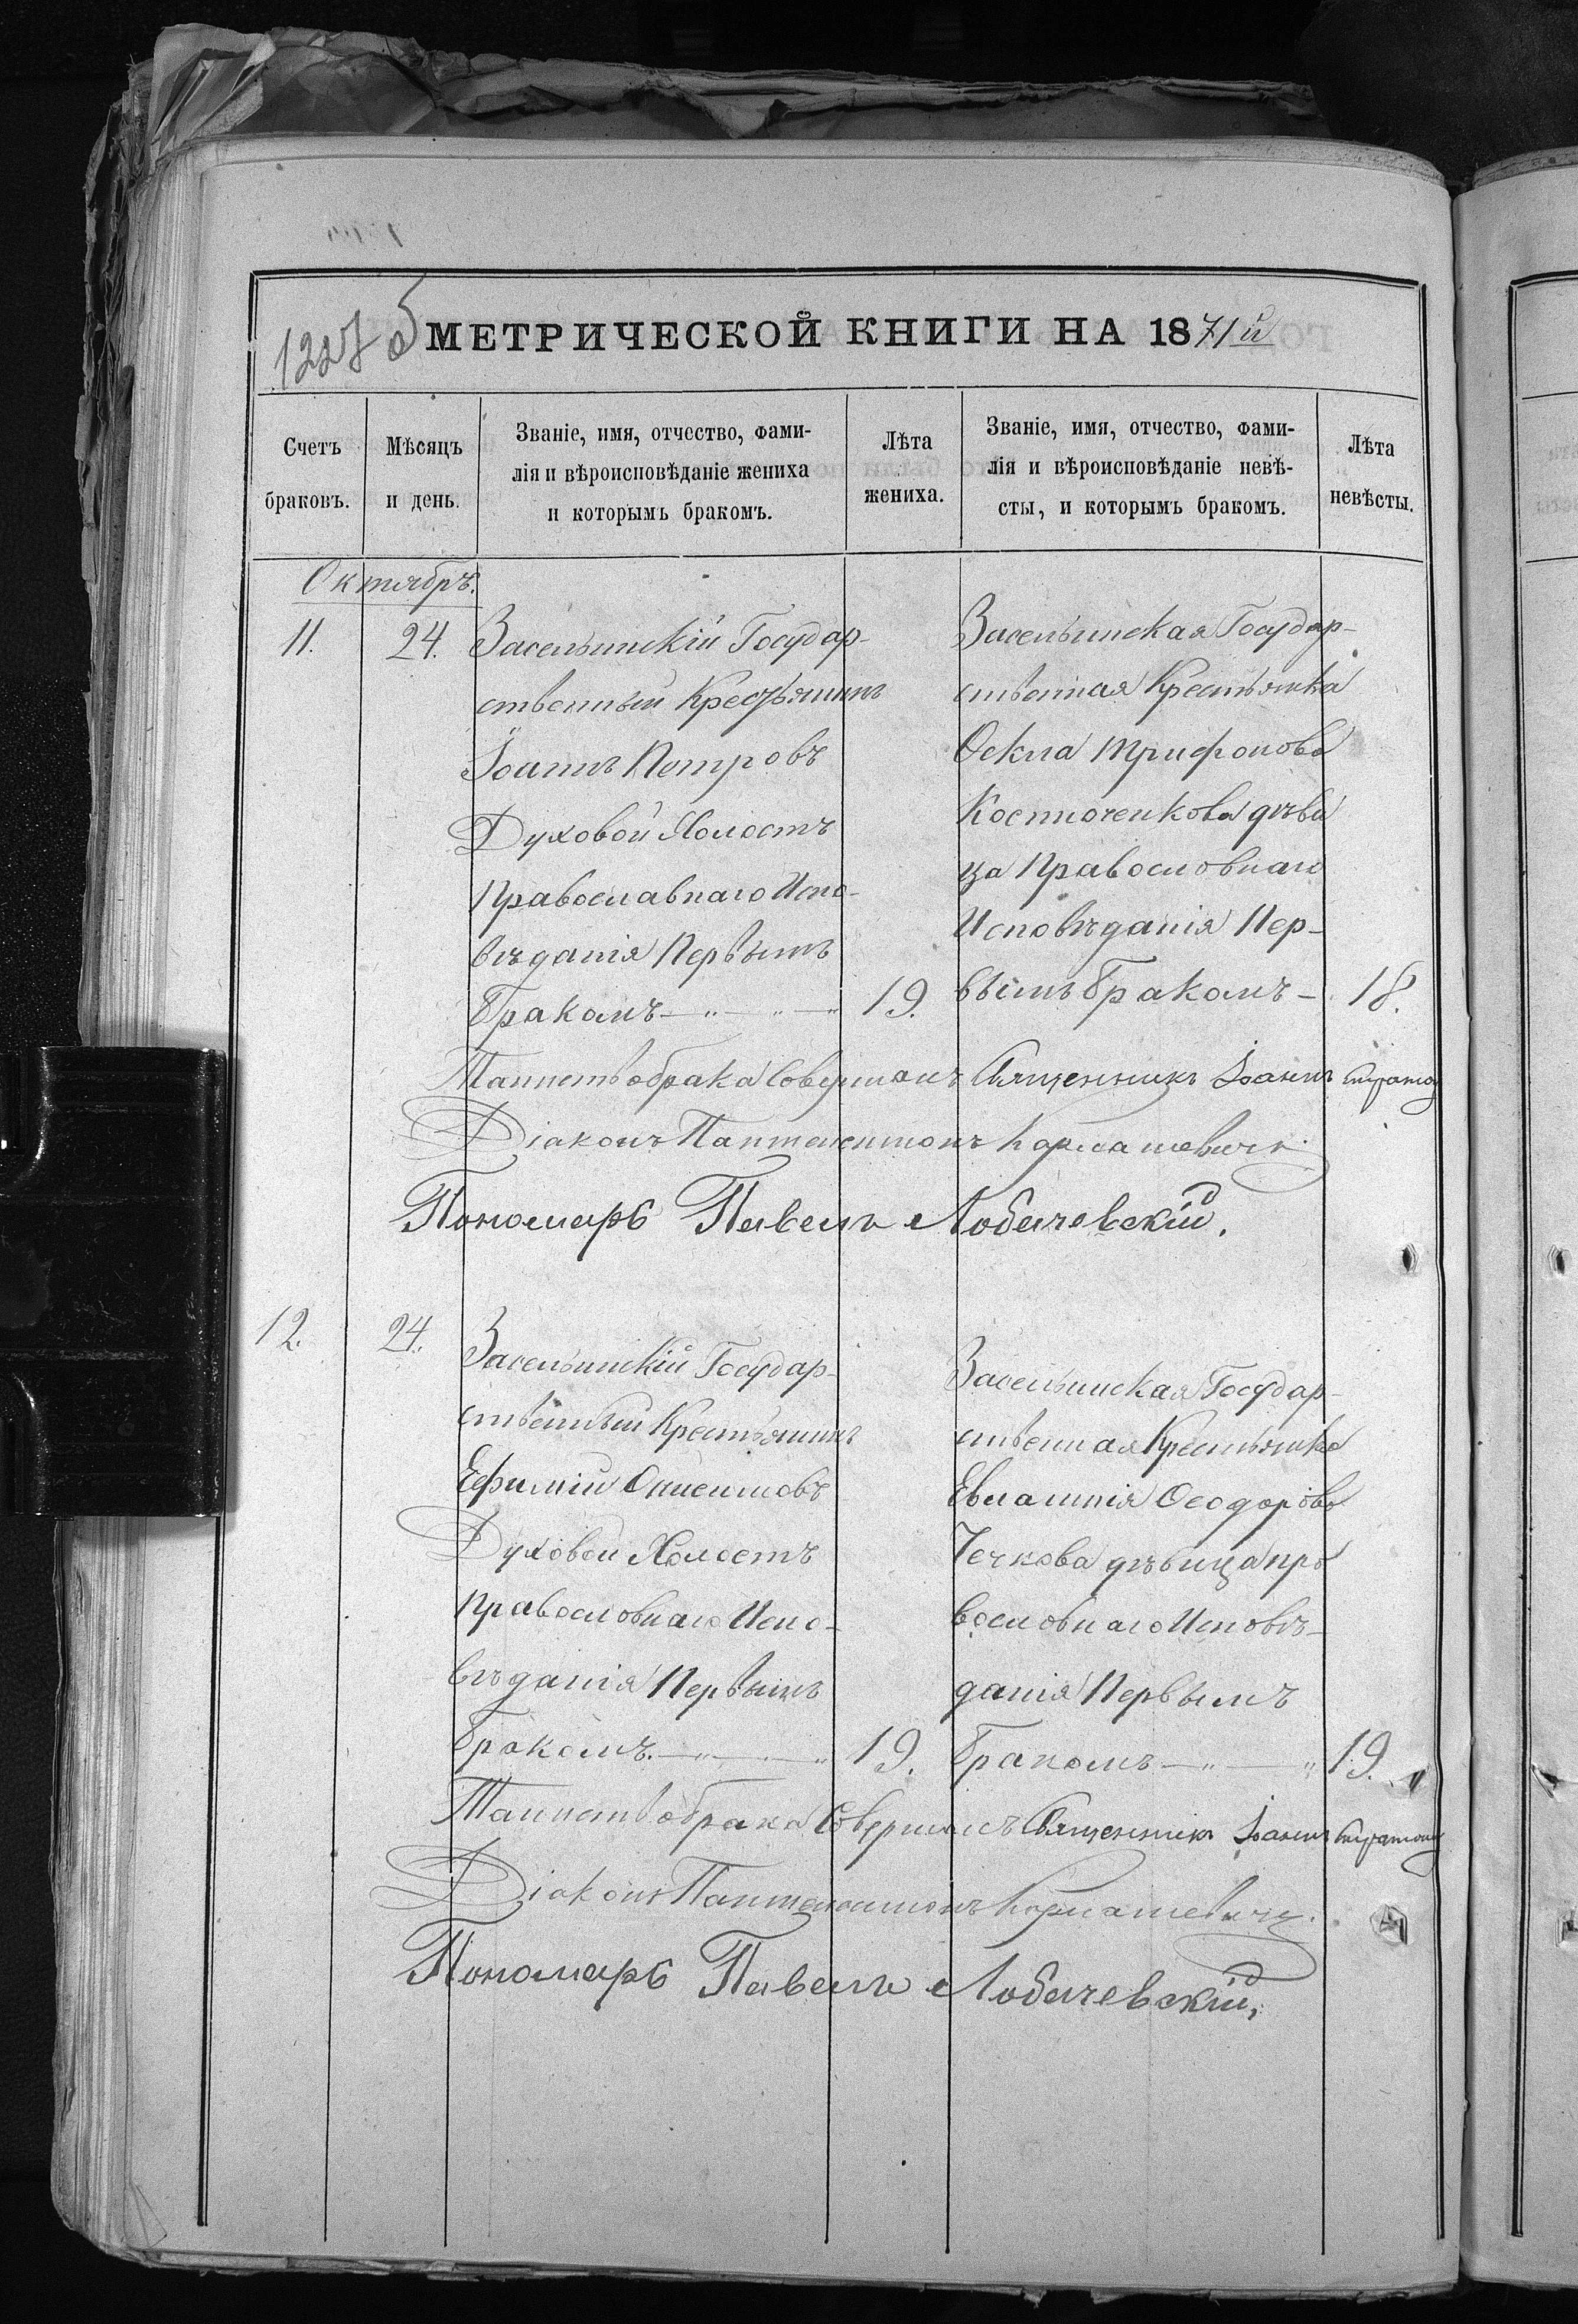 1227 об
МЕТРИЧЕСКОЙ КНИГИ НА 1871й
Счетъ
браковъ.
Мѣсяцъ
и день.
Званіе, имя, отчество, фами-
лія и вѣроисповѣданіе жениха
и которымъ бракомъ.
Лѣта
жениха.
Званіе, имя, отчество, фами-
лія и вѣроисповѣданіе невѣ-
сты, и которымъ бракомъ.
Лѣта
невѣсты.
Октябрь.
11.
24.
Засельинскій Государ-
ственный Крестьянинъ
Іоаннъ Петровъ
Духовой Холостъ
Православнаго Испо-
вѣданія Первымъ
Бракомъ
19.
Засельинская Государ-
ственная Крестьянка
Ѳекла Трифонова
Костюченкова дѣви
ца Православнаго
Исповѣданія Пер-
вымъ Бракомъ
18.
Таинство брака Совершалъ Священникъ Іоаннъ
Діаконъ Пантелеимонъ Кармашевичъ.
Пономарь Павелъ Лобачевскій.
12.
24.
Засельинскій Государ-
ственный Крестьянинъ
Ефимій Онисимовъ
Духовой Холостъ
Православнаго Испо-
вѣданія Первымъ
Бракомъ.
19.
Засельинская Государ-
ственная Крестьянка
Евлампія Ѳеодорова
Чечкова дѣвица Пра
вославнаго Исповѣ-
данія Первымъ
Бракомъ
19.
Таинство брака Совершалъ Священникъ Іоаннъ
Діаконъ Пантелеимонъ Кармашевичъ.
Пономарь Павелъ Лобачевскій,